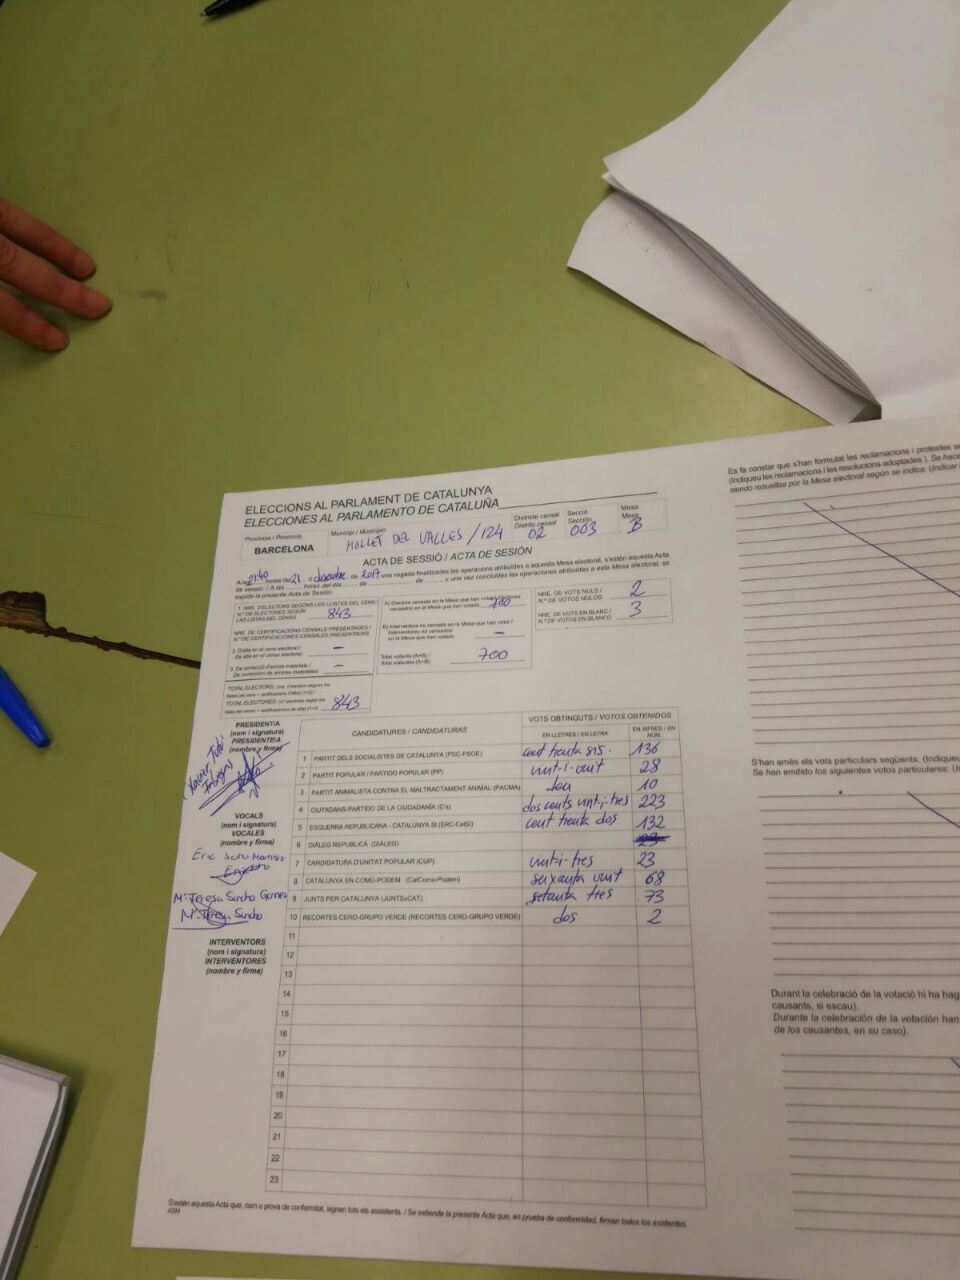 ELECCIONS AL PARLAMENT DE CATALUNYA
ELECCIONES AL PARLAMENTO DE CATALUÑA
Província / Provincia
BARCELONA
Municipi / Municipio
MOLLET DEL VALLES / 124
Districte censal
Distrito censal
02
Secció
Sección
003
Mesa
Mesa
B
ACTA DE SESSIÓ / ACTA DE SESIÓN
A les 21:40 hores del 21 de desembre de 2017 una vegada finalitzades les operacions atribuïdes a aquesta Mesa electoral, s'estén aquesta Acta
de sessió: / A las ........ horas del día ...... de ........................ de ........, y una vez concluidas las operaciones atribuidas a esta Mesa electoral, se
expide la presente Acta de Sesión.
1. NRE. D'ELECTORS SEGONS LES LLISTES DEL CENS
N.º DE ELECTORES SEGÚN
LAS LISTAS DEL CENSO
843
NRE. DE CERTIFICACIONS CENSALS PRESENTADES /
N.º DE CERTIFICACIONES CENSALES PRESENTADAS
2. D'alta en el cens electoral /
De alta en el censo electoral
–
3. De correcció d'errors materials /
De corrección de errores materiales
–
TOTAL ELECTORS:
TOTAL ELECTORES:
843
A) Electors censats en la Mesa que han votat
censados en la Mesa que han votado
700
B) Interventors no censats en la Mesa que han votat /
Interventores no censados
en la Mesa que han votado
–
Total votants (A+B) /
Total votantes (A+B)
700
NRE. DE VOTS NULS /
N.º DE VOTOS NULOS
2
NRE. DE VOTS EN BLANC /
N.º DE VOTOS EN BLANCO
3
PRESIDENT/A
(nom i signatura)
PRESIDENTE/A
(nombre y firma)
Xavier
VOCALS
(nom i signatura)
VOCALES
(nombre y firma)
Èric
Mª Teresa Sancho
Mª Teresa Sancho
INTERVENTORS
(nom i signatura)
INTERVENTORES
(nombre y firma)
CANDIDATURES / CANDIDATURAS
VOTS OBTINGUTS / VOTOS OBTENIDOS
EN LLETRES / EN LETRA
EN XIFRES / EN NÚM.
1 PARTIT DELS SOCIALISTES DE CATALUNYA (PSC-PSOE) cent trenta sis. 136
2 PARTIT POPULAR / PARTIDO POPULAR (PP) vint-i-vuit 28
3 PARTIT ANIMALISTA CONTRA EL MALTRACTAMENT ANIMAL (PACMA) deu 10
4 CIUTADANS-PARTIDO DE LA CIUDADANÍA (C's) dos cents vint-i-tres 223
5 ESQUERRA REPUBLICANA - CATALUNYA SÍ (ERC-CatSí) cent trenta dos 132
6 DIÀLEG REPUBLICÀ (DIÀLEG)
7 CANDIDATURA D'UNITAT POPULAR (CUP) vint-i-tres 23
8 CATALUNYA EN COMÚ-PODEM (CatComú-Podem) seixanta vuit 68
9 JUNTS PER CATALUNYA (JUNTSxCAT) setanta tres 73
10 RECORTES CERO-GRUPO VERDE (RECORTES CERO-GRUPO VERDE) dos 2
11
12
13
14
15
16
17
18
19
20
21
22
23
S'estén aquesta Acta que, com a prova de conformitat, signen tots els assistents. / Se extiende la presente Acta que, en prueba de conformidad, firman todos los asistentes.
ASM
Es fa constar que s'han formulat les reclamacions i protestes
(Indiqueu les reclamacions i les resolucions adoptades.). Se hace
siendo resueltas por la Mesa electoral según se indica: (Indicar
S'han emès els vots particulars següents. (Indiqueu
Se han emitido los siguientes votos particulares:
Durant la celebració de la votació hi ha hag
causants, si escau).
Durante la celebración de la votación han
de los causantes, en su caso).